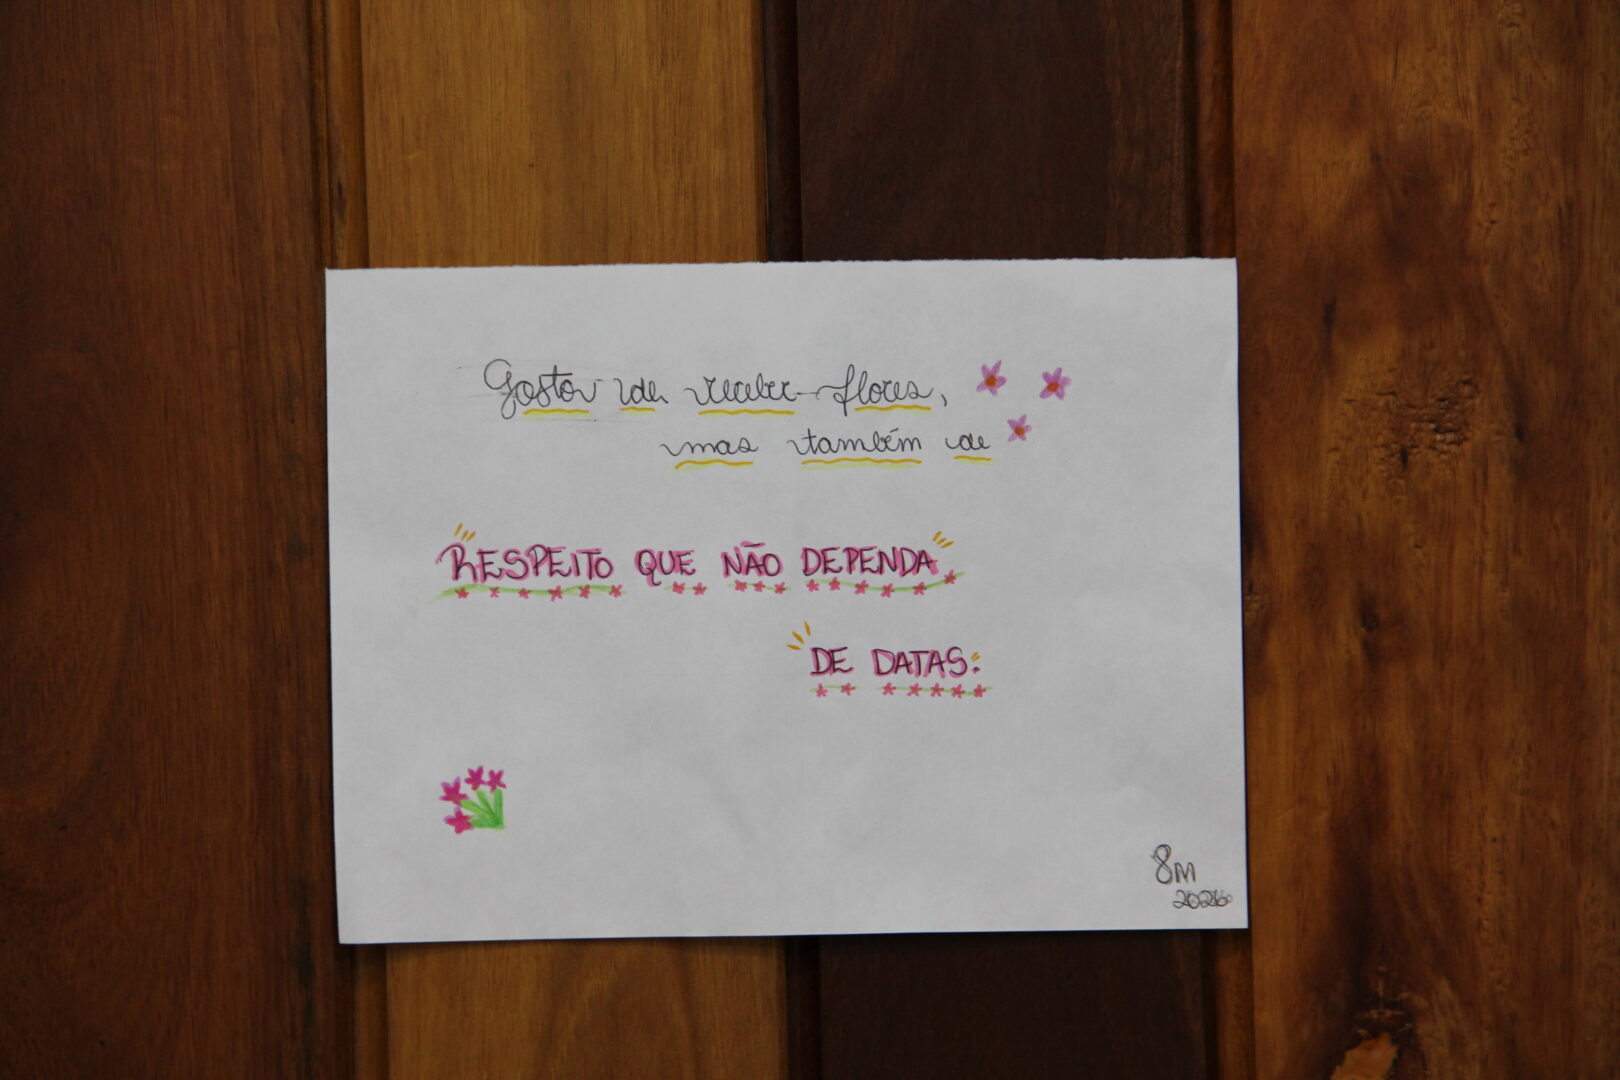 Gostar de receber flores,
mas também de
RESPEITO QUE NÃO DEPENDA
DE DATAS.
8M
2026